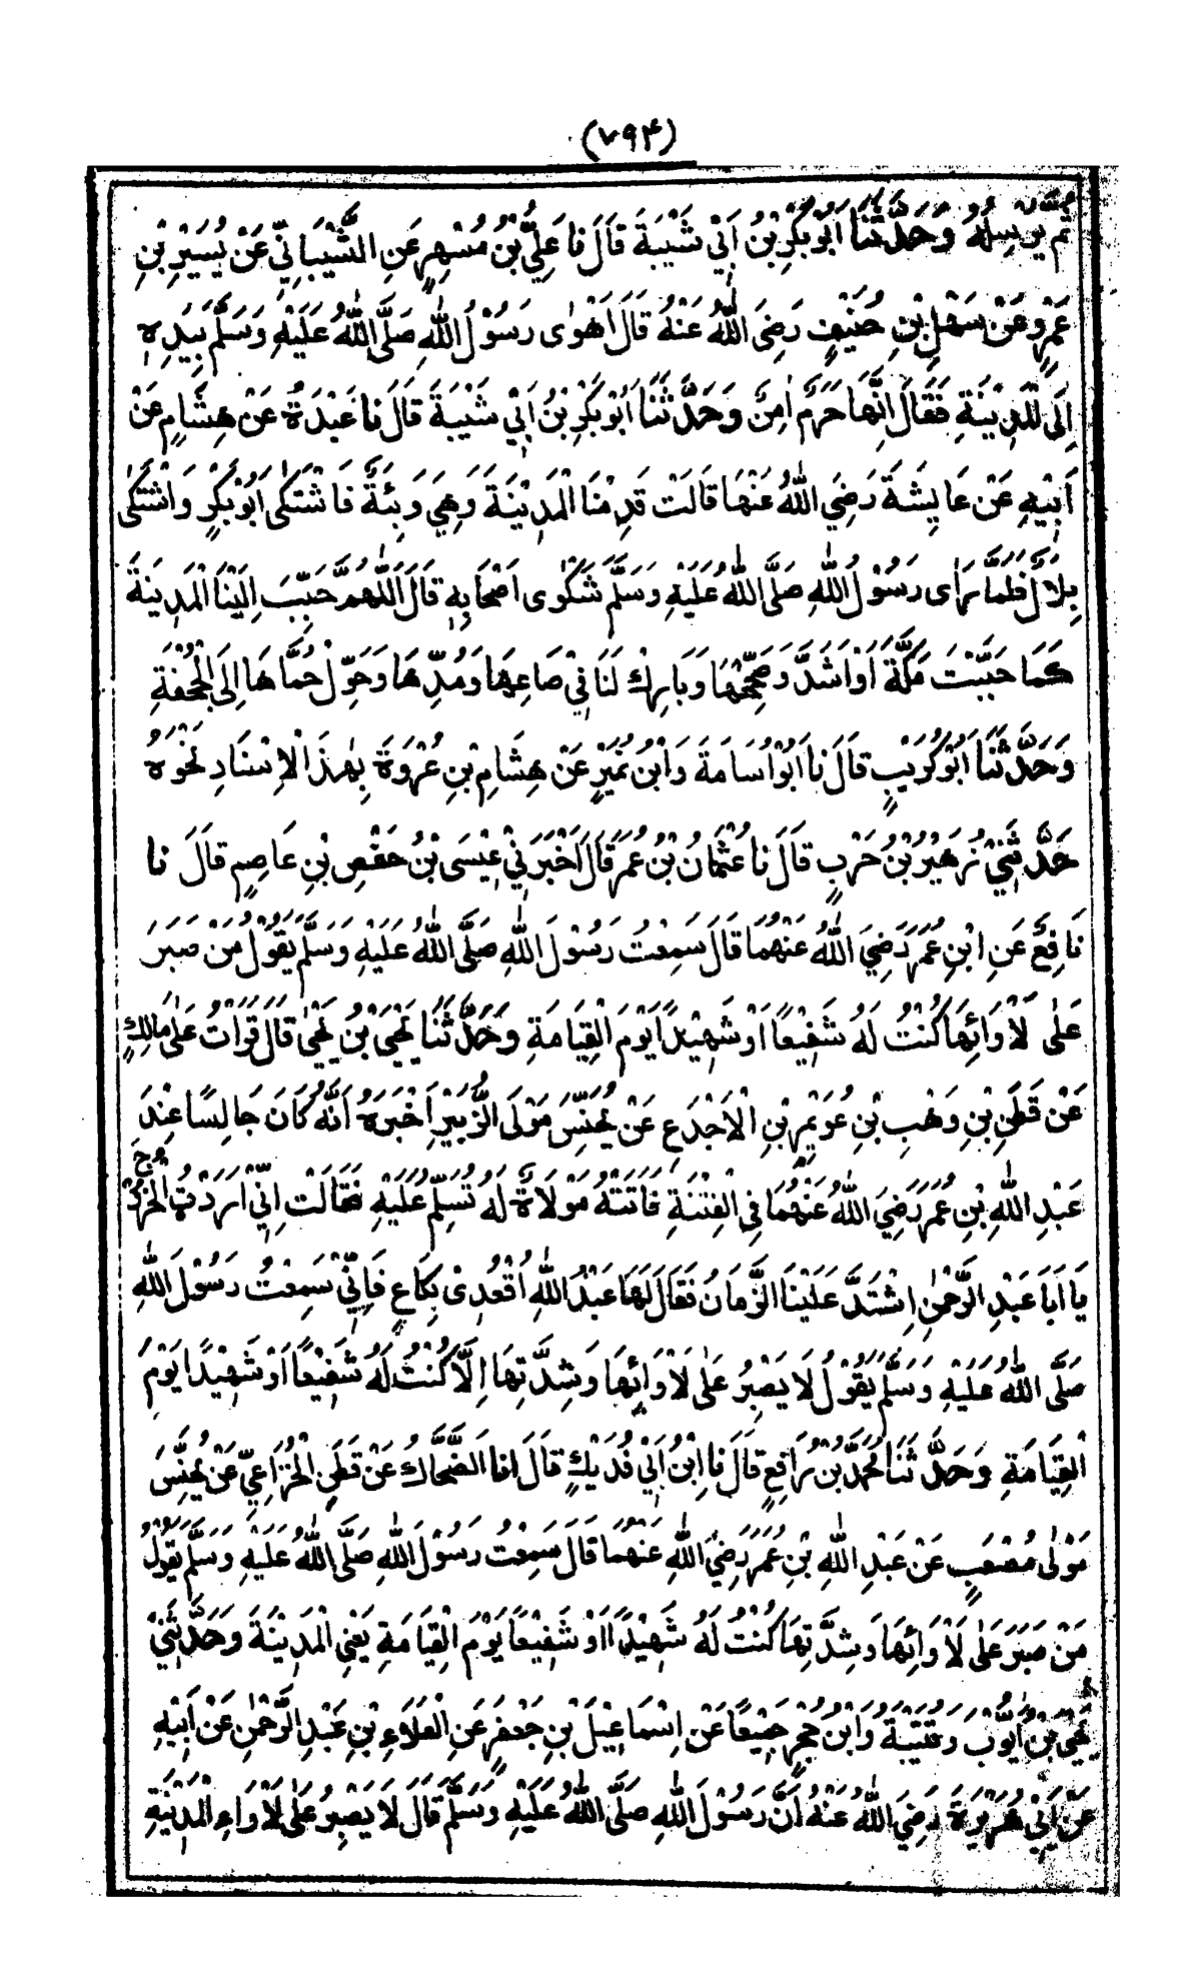 (۷۹۴)
ثُمَّ لَمْ يُرْسِلْهُ وَحَدَّثَنَا أَبُوْ بَكْرِ بْنُ أَبِيْ شَيْبَةَ قَالَ نَا عَلِيُّ بْنُ مُسْهِرٍ عَنِ الشَّيْبَانِيِّ عَنْ يُسَيْرِ بْنِ
عَمْرٍو عَنْ سَهْلِ بْنِ حُنَيْفٍ رَضِيَ اللّٰهُ عَنْهُ قَالَ أَهْوٰى رَسُوْلُ اللّٰهِ صَلَّى اللّٰهُ عَلَيْهِ وَسَلَّمَ بِيَدِهٖ
إِلَى الْمَدِيْنَةِ فَقَالَ إِنَّهَا حَرَمٌ اٰمِنٌ وَحَدَّثَنَا أَبُوْ بَكْرِ بْنُ أَبِيْ شَيْبَةَ قَالَ نَا عَبْدَةُ عَنْ هِشَامٍ عَنْ
أَبِيْهِ عَنْ عَايِشَةَ رَضِيَ اللّٰهُ عَنْهَا قَالَتْ قَدِمْنَا الْمَدِيْنَةَ وَهِيَ وَبِئَةٌ فَاشْتَكٰى أَبُوْ بَكْرٍ وَاشْتَكٰى
بِلَالٌ فَلَمَّا رَأٰى رَسُوْلُ اللّٰهِ صَلَّى اللّٰهُ عَلَيْهِ وَسَلَّمَ شَكْوٰى أَصْحَابِهٖ قَالَ اَللّٰهُمَّ حَبِّبْ إِلَيْنَا الْمَدِيْنَةَ
كَمَا حَبَّبْتَ مَكَّةَ أَوْ أَشَدَّ وَصَحِّحْهَا وَبَارِكْ لَنَا فِيْ صَاعِهَا وَمُدِّهَا وَحَوِّلْ حُمَّاهَا إِلَى الْجُحْفَةِ
وَحَدَّثَنَا أَبُوْ كُرَيْبٍ قَالَ نَا أَبُوْ أُسَامَةَ وَابْنُ نُمَيْرٍ عَنْ هِشَامِ بْنِ عُرْوَةَ بِهٰذَا الْإِسْنَادِ نَحْوَهُ
حَدَّثَنِيْ زُهَيْرُ بْنُ حَرْبٍ قَالَ نَا عُثْمَانُ بْنُ عُمَرَ قَالَ أَخْبَرَنِيْ عِيْسَى بْنُ حَفْصِ بْنِ عَاصِمٍ قَالَ نَا
نَافِعٌ عَنِ ابْنِ عُمَرَ رَضِيَ اللّٰهُ عَنْهُمَا قَالَ سَمِعْتُ رَسُوْلَ اللّٰهِ صَلَّى اللّٰهُ عَلَيْهِ وَسَلَّمَ يَقُوْلُ مَنْ صَبَرَ
عَلٰى لَأْوَائِهَا كُنْتُ لَهُ شَفِيْعًا أَوْ شَهِيْدًا يَوْمَ الْقِيَامَةِ وَحَدَّثَنَا يَحْيَى بْنُ يَحْيٰى قَالَ قَرَأْتُ عَلٰى مَالِكٍ
عَنْ قَطَنِ بْنِ وَهْبِ بْنِ عُوَيْمِرِ بْنِ الْأَجْدَعِ عَنْ يُحَنَّسَ مَوْلَى الزُّبَيْرِ أَخْبَرَهُ أَنَّهُ كَانَ جَالِسًا عِنْدَ
عَبْدِ اللّٰهِ بْنِ عُمَرَ رَضِيَ اللّٰهُ عَنْهُمَا فِي الْفِتْنَةِ فَأَتَتْهُ مَوْلَاةٌ لَهُ تُسَلِّمُ عَلَيْهِ فَقَالَتْ إِنِّيْ أَرَدْتُ الْخُرُوْجَ
يَا أَبَا عَبْدِ الرَّحْمٰنِ اِشْتَدَّ عَلَيْنَا الزَّمَانُ فَقَالَ لَهَا عَبْدُ اللّٰهِ أُقْعُدِيْ لَكَاعِ فَإِنِّيْ سَمِعْتُ رَسُوْلَ اللّٰهِ
صَلَّى اللّٰهُ عَلَيْهِ وَسَلَّمَ يَقُوْلُ لَا يَصْبِرُ عَلٰى لَأْوَائِهَا وَشِدَّتِهَا إِلَّا كُنْتُ لَهُ شَفِيْعًا أَوْ شَهِيْدًا يَوْمَ
الْقِيَامَةِ وَحَدَّثَنَا مُحَمَّدُ بْنُ رَافِعٍ قَالَ نَا ابْنُ أَبِيْ فُدَيْكٍ قَالَ انَا الضَّحَّاكُ عَنْ قَطَنٍ الْخُزَاعِيِّ عَنْ يُحَنَّسَ
مَوْلٰى مُصْعَبٍ عَنْ عَبْدِ اللّٰهِ بْنِ عُمَرَ رَضِيَ اللّٰهُ عَنْهُمَا قَالَ سَمِعْتُ رَسُوْلَ اللّٰهِ صَلَّى اللّٰهُ عَلَيْهِ وَسَلَّمَ يَقُوْلُ
مَنْ صَبَرَ عَلٰى لَأْوَائِهَا وَشِدَّتِهَا كُنْتُ لَهُ شَهِيْدًا أَوْ شَفِيْعًا يَوْمَ الْقِيَامَةِ يَعْنِي الْمَدِيْنَةَ وَحَدَّثَنِيْ
يَحْيَى بْنُ أَيُّوْبَ وَقُتَيْبَةُ وَابْنُ حُجْرٍ جَمِيْعًا عَنْ إِسْمَاعِيْلَ بْنِ جَعْفَرٍ عَنِ الْعَلَاءِ بْنِ عَبْدِ الرَّحْمٰنِ عَنْ أَبِيْهِ
عَنْ أَبِيْ هُرَيْرَةَ رَضِيَ اللّٰهُ عَنْهُ أَنَّ رَسُوْلَ اللّٰهِ صَلَّى اللّٰهُ عَلَيْهِ وَسَلَّمَ قَالَ لَا يَصْبِرُ عَلٰى لَأْوَاءِ الْمَدِيْنَةِ